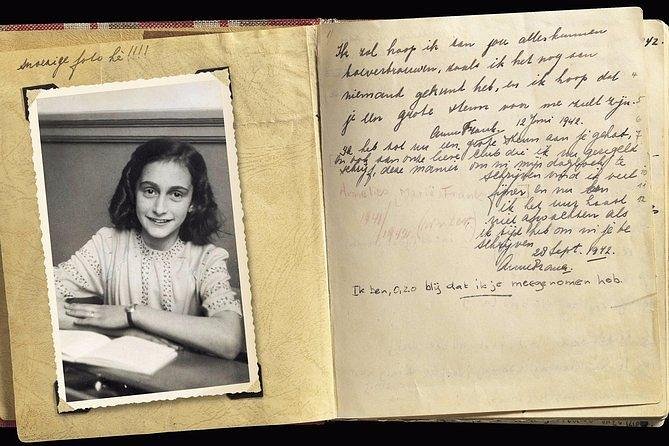 snoezige foto hè!!!!
Ik zal hoop ik aan jou alles kunnen
toevertrouwen, zoals ik het nog aan
niemand gekund heb, en ik hoop dat
je een grote steun voor me zult zijn.
Anne Frank. 12 Juni 1942.
Ik heb tot nu een grote steun aan je gehad,
en ook aan onze lieve club die ik nu geregeld
schrijf, deze manier om in mijn dagboek te
schrijven vind ik veel
fijner en nu kan
ik het uur haast
niet afwachten als
ik tijd heb om in je te
schrijven
28 Sept. 1942.
Anne Frank.
Ik ben, O, zo blij dat ik je meegenomen heb.
42.
4
5
6
7
11
12
Annelies Marie Frank